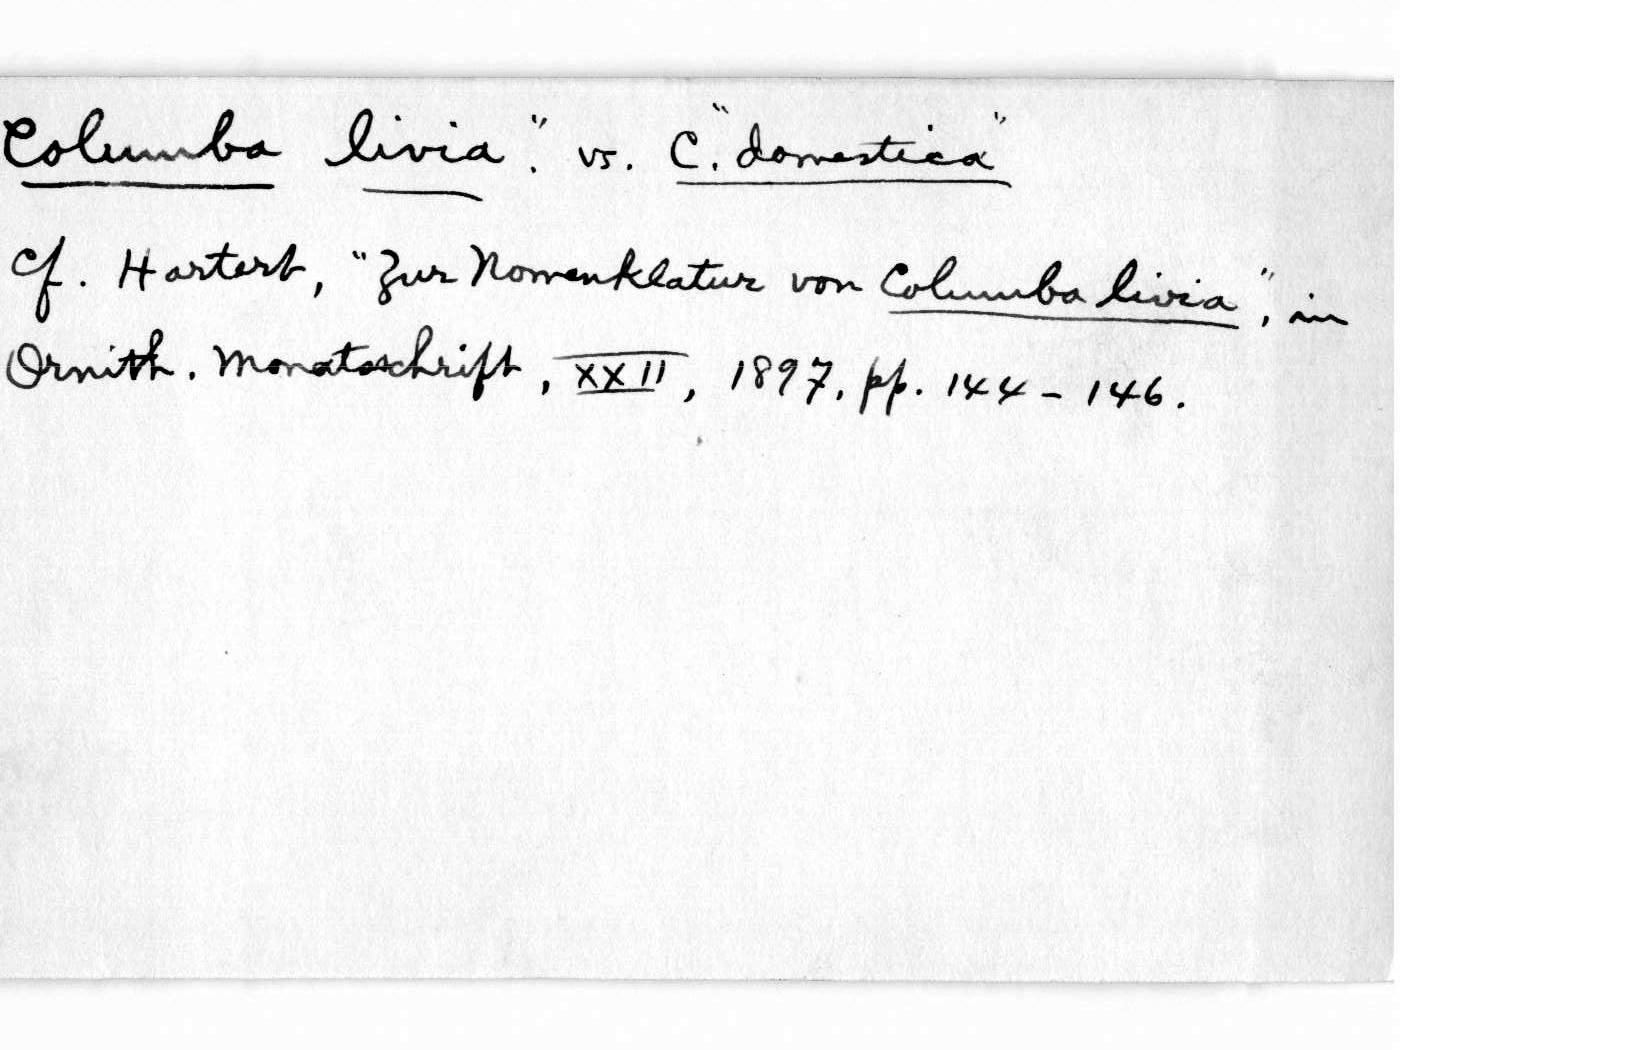 Columba livia". vs. C. "domestica"
Cf. Hartert, "Zur Nomenklatur von Columba livia", in
Ornith. Monatsschrift, XXII, 1897, pp. 144-146.